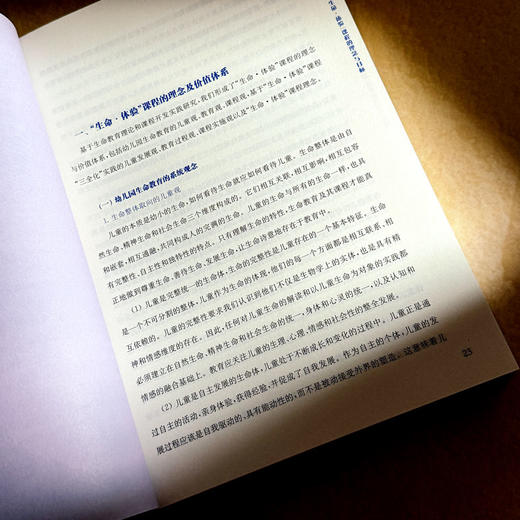 生命·体验”课程的理念与目标
一、“生命·体验”课程的理念及价值体系
基于生命教育理论和课程开发实践研究，我们形成了“生命·体验”课程的理念
与价值体系，包括幼儿园生命教育的儿童观、教育观、课程观，基于“生命·体验”课程
“三全化”实践的儿童发展观、教育过程观、课程实施观以及“生命·体验”课程理念。
（一）幼儿园生命教育的系统观念
1. 生命整体取向的儿童观
儿童的本质是幼小的生命，如何看待生命就应如何看待儿童。生命整体是由自
然生命、精神生命和社会生命三个维度构成的。它们相互关联，相互影响，相互包容
和嵌套，相互通融，共同构成人的完满的生命。儿童的生命与所有的生命一样，也具
有完整性、自主性和独特性的特点。只有理解生命的特性，生命教育及其课程才能真
正地做到尊重生命、善待生命、发展生命，让生命诗意地存在于教育中。
（1）儿童是完整统一的生命体，生命的完整性是儿童存在的一个基本特征。生命
是一个不可分割的整体，儿童作为生命的体现，他们的每一个方面都是相互联系、相
互依赖的。儿童的完整性要求我们认识到他们不仅是生物学上的实体，也是具有精
神和情感维度的存在。因此，任何对儿童生命的解读和以儿童生命为对象的实践都
必须建立在自然生命、精神生命和社会生命的统一，身体和心灵的统一，以及认知和
情感的融合基础上。教育应关注儿童的生理、心理、情感和社会性的整全发展。
（2）儿童是自主发展的生命体，儿童处于不断成长和变化的过程中。儿童正是通
过自主的活动，亲身体验，获得经验，并促成了自我发展。作为自主的个体，儿童的发
展过程应该是自我驱动的、具有能动性的，而不是被动接受外界的塑造。这意味着儿
23